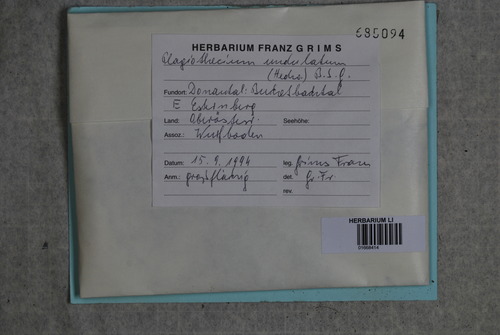 685094
HERBARIUM FRANZ GRIMS
Plagiothecium undulatum
(Hedw.) B.S.G.
Fundort: Donautal:
E
Land: Oberösterr. Seehöhe:
Assoz.:
Datum: 15. 9. 1994 leg. Grims Franz
Anm.: det. Gr. Fr.
rev.
HERBARIUM LI